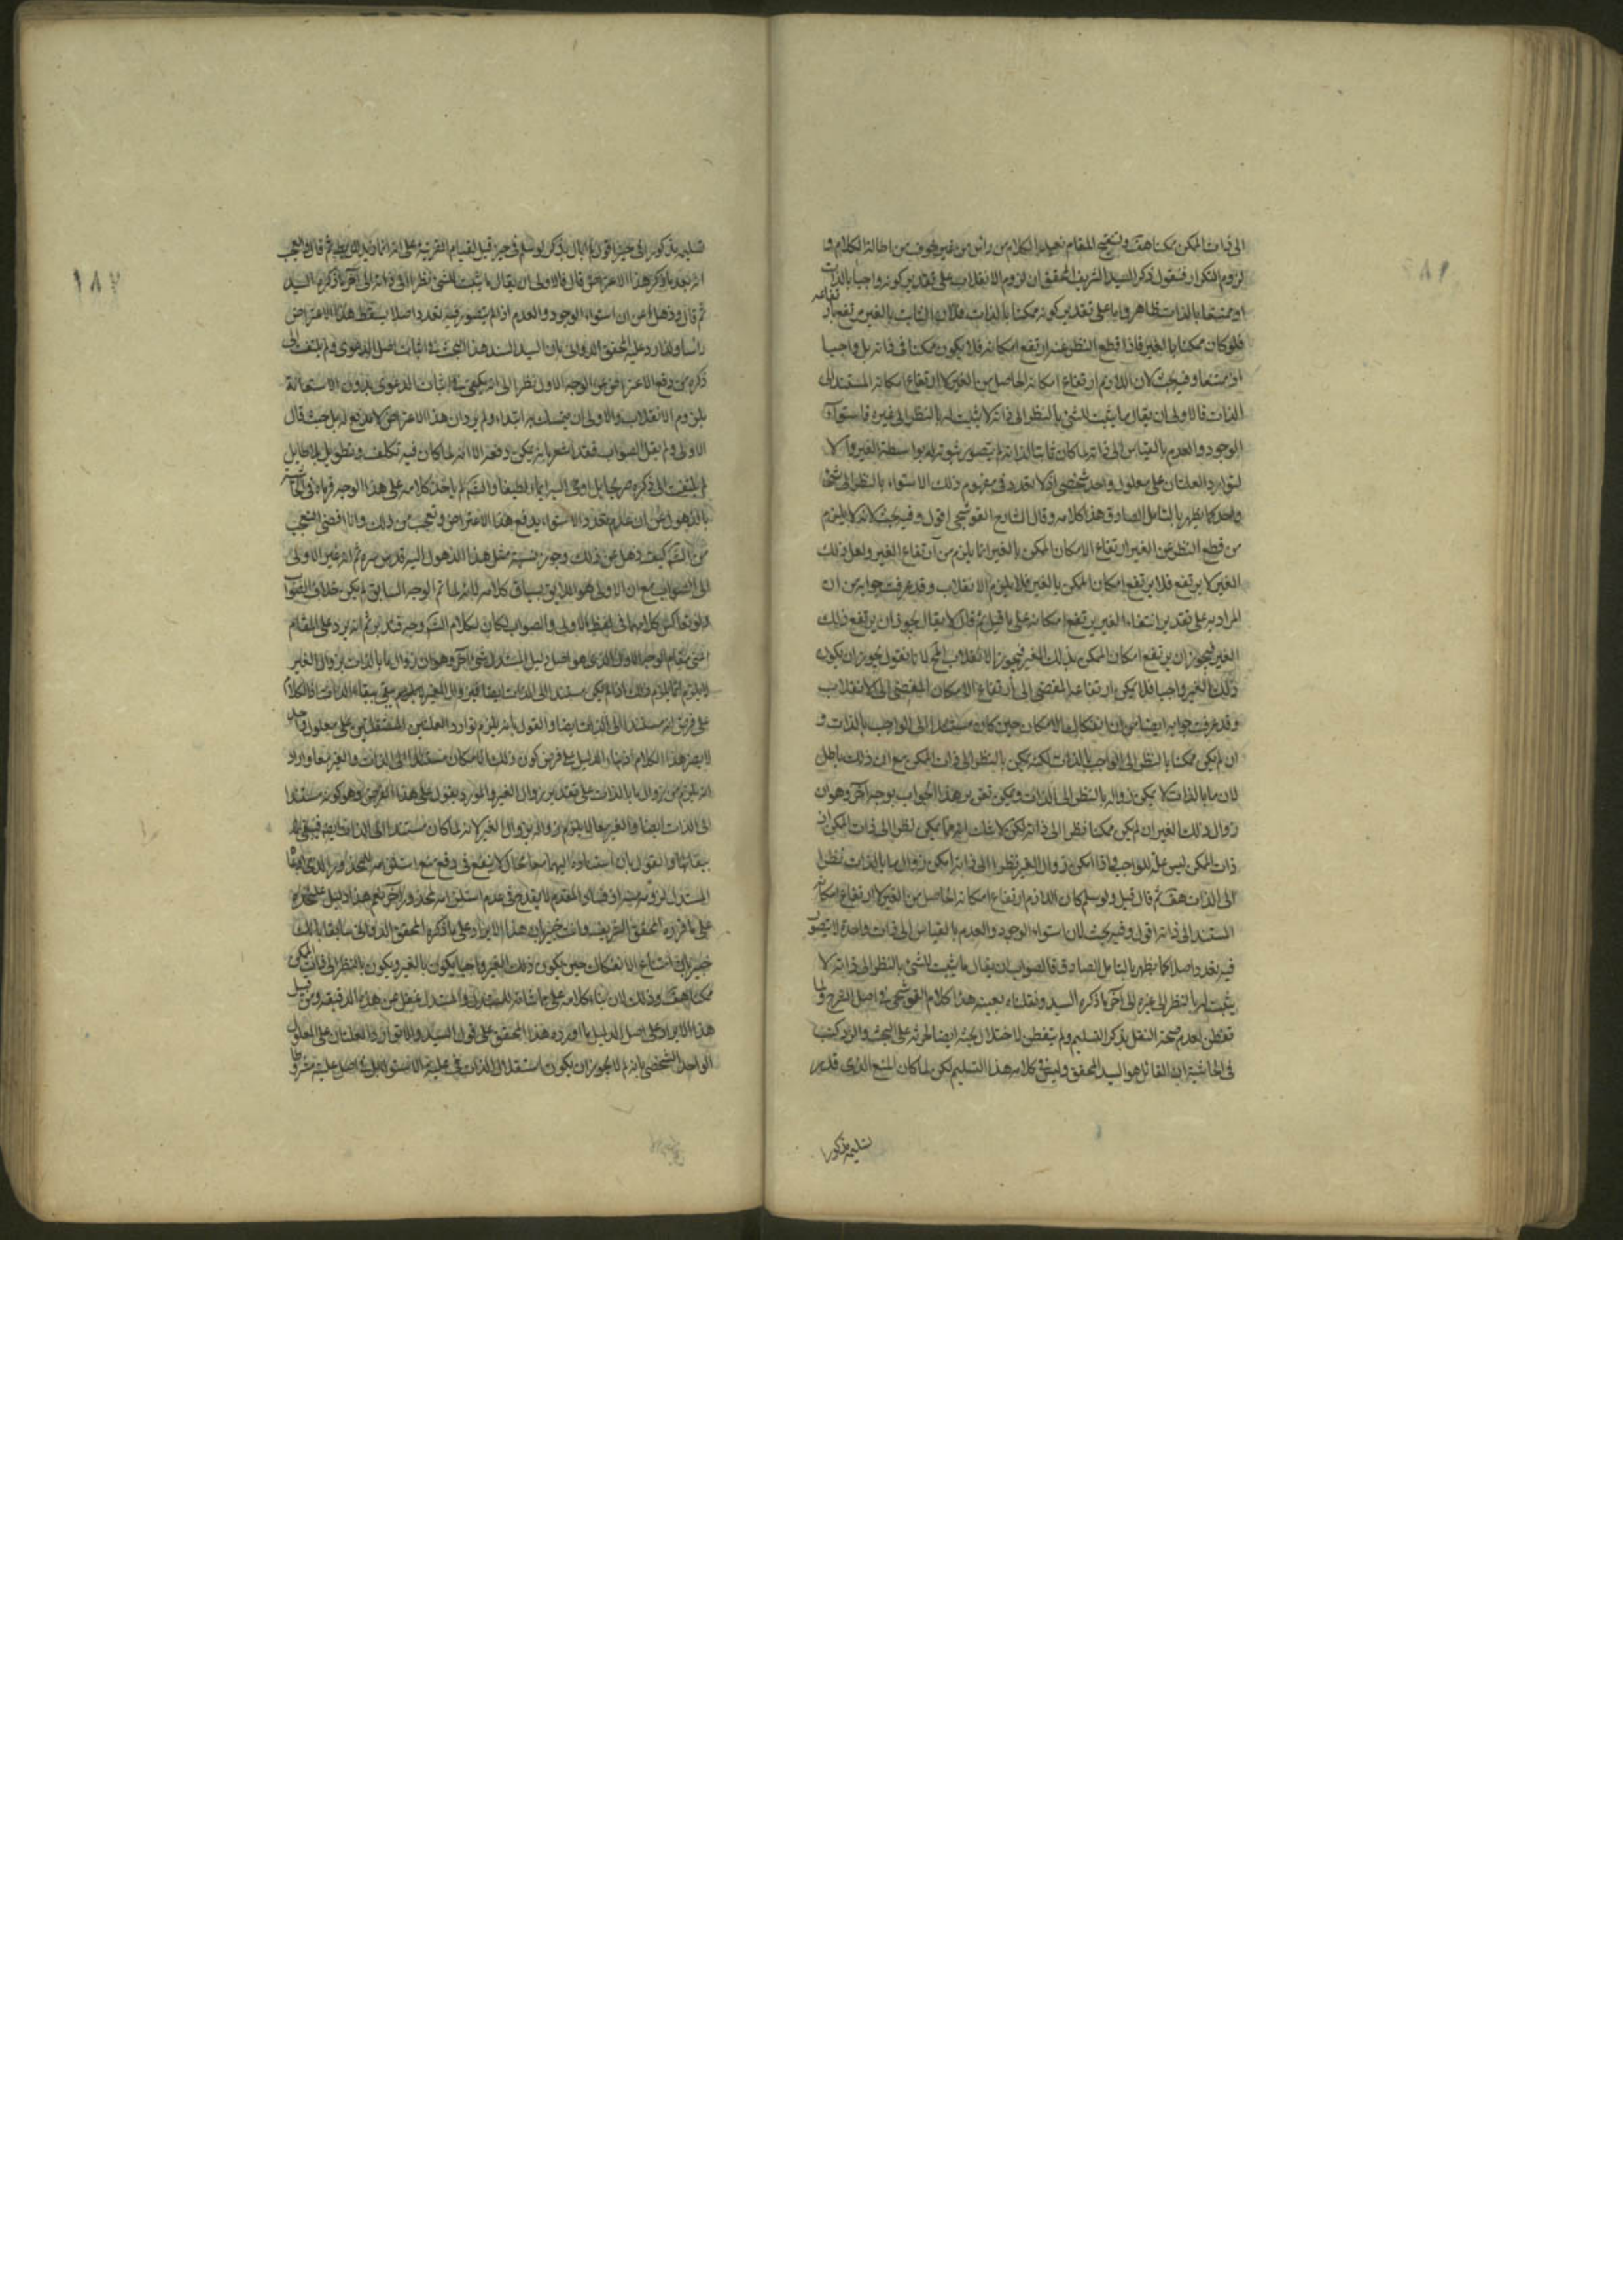 الى ذات الممكن ممكنا هف ولتنقيح المقام نعيد الكلام من رأس من غير خوف من اطالة الكلام و
لزوم التكرار فنقول ذكر السيد الشريف المحقق ان لزوم الانقلاب على تقدير كونه واجبا بالذات
او ممتنعا بالذات ظاهر واما على تقدير كونه ممكنا بالذات فلان الثابت بالغير يرتفع بارتفاعه
فلو كان ممكنا بالغير فاذا قطع النظر عنه ارتفع امكانه فلا يكون ممكنا في ذاته بل واجبا
او ممتنعا وفيه بحث لان اللازم ارتفاع امكانه الحاصل من الغير لا ارتفاع امكانه المستند الى
الذات فالاولى ان يقال ما يثبت للشئ بالنظر الى ذاته لا يثبت له بالنظر الى غيره فاستواء
الوجود والعدم بالقياس الى ذاته لما كان ثابتا لذاته لم يتصور ثبوته له بواسطة الغير والا
لتوارد العلتان على معلول واحد شخصي اذ لا تعدد في مفهوم ذلك الاستواء بالنظر الى شئ
واحد كما يظهر بالتامل الصادق هذا كلامه وقال الشارح القوشجي اقول وفيه بحث لانه لا يلزم
من قطع النظر عن الغير ارتفاع الامكان الممكن بالغير انما يلزم من ارتفاع الغير ولعل ذلك
الغير لا يرتفع فلا يرتفع امكان الممكن بالغير فلا يلزم الانقلاب وقد عرفت جوابه من ان
المراد به على تقدير انتفاء الغير يرتفع امكانه على ما قيل ثم قال لا يقال يجوز ان يرتفع ذلك
الغير فيجوز ان يرتفع امكان الممكن بذلك الغير فيجوز الانقلاب المح لانا نقول يجوز ان يكون
ذلك الغير واجبا فلا يمكن ارتفاعه المفضي الى ارتفاع الامكان المفضي الى الانقلاب
وقد عرفت جوابه ايضا من ان الامكان حين كان مستندا الى الواجب بالذات و
ان لم يكن ممكنا بالنظر الى الواجب بالذات لكنه يمكن بالنظر الى ذات الممكن مع ان ذلك باطل
لان ما بالذات لا يمكن زواله بالنظر الى الذات ويمكن تقرير هذا الجواب بوجه آخر وهو ان
زوال ذلك الغير ان لم يكن ممكنا نظرا الى ذاته لكن لا شك انه مما يمكن نظرا الى ذات الممكن اذ
ذات الممكن ليس علة للواجب فاذا امكن زوال الغير نظرا الى ذاته امكن زوال ما بالذات نظرا
الى الذات هف ثم قال قيل ولو سلم كان اللازم ارتفاع امكانه الحاصل من الغير لا ارتفاع امكانه
المستند الى ذاته اقول وفيه بحث لان استواء الوجود والعدم بالقياس الى ذات واحدة لا يتصور
فيه تعدد اصلا كما يظهر بالتامل الصادق فالصواب ان يقال ما يثبت للشئ بالنظر الى ذاته لا
يثبت له بالنظر الى غيره الى آخر ما ذكره السيد ونقلناه بعينه هذا كلام القوشجي في اصل الشرح ولما
تفطن لعدم صحة النقل بذكر التسليم ولم يتفطن لاختلال بحثه ايضا لحرثه على البحث والرد كتب
في الحاشية ان القائل هو السيد المحقق وليس في كلامه هذا التسليم لكن لما كان المنع الذي قدر
تسليمه مذكورا
١٨٧
تسليمه مذكورا في حيز اقول لا بال بذكر لو سلم في حيز قيل لقيام القرينة على انه ثم قال والعجب
انه بعد ما ذكر هذا الاعتراض قال فالاولى ان يقال ما يثبت للشئ نظرا الى ذاته الى آخر ما ذكره السيد
ثم قال وذهل عن ان استواء الوجود والعدم اذا لم يتصور فيه تعدد اصلا يسقط هذا الاعتراض
رأسا ولذا رد عليه المحقق الدواني بان السيد السند هذا البحث في اثبات اصل الدعوى ولم يلتفت الى
ذكره من دفع الاعتراض عن الوجه الاول نظرا الى انه يكفي في اثبات الدعوى بدون الاستعانة
بلزوم الانقلاب والاولى ان يتمسك به ابتداء ولم يرد ان هذا الاعتراض لا مدفع له بل حيث قال
الاولى ولم يقل الصواب فقد اشعر بانه يمكن دفعه الا انه لما كان فيه تكلف وتطويل بلا طايل
لم يلتفت الى ذكره صريحا بل اومى اليه ايماء لطيفا والش لم ياخذ كلامه على هذا الوجه فرماه في الحاشية
بالذهول عن ان عدم تعدد الاستواء يدفع هذا الاعتراض وتعجب من ذلك وانا اقضى العجب
من الش كيف ذهل عن ذلك وجوز نسبة مثل هذا الذهول اليه قدس سره ثم انه غير الاولى
الى الصواب مع ان الاولى هو اللايق بسياق كلامه لانه لما تم الوجه السابق لم يكن خلاف الصواب
ولو تعاكس كلاهما في لفظ الاولى والصواب لكان لكلام الش وجه ثم انه يرد على المقام
اعني مقام الوجه الاول الذي هو اصل دليل المستدل شئ آخر وهو ان زوال ما بالذات بزوال الغير
انما يلزم ذلك اذا لم يكن مستندا الى الذات ايضا يبقى ببقاء الذات اذ الكلام
على فرض انه مستند الى الذات ايضا والقول بانه يلزم توارد العلتين المستقلتين على معلول واحد
لا يضر هذا الكلام الدليل على فرض كون ذلك الامكان مستندا الى الذات والغير معا واراد
انه يلزم من زوال ما بالذات على تقدير زوال الغير والمورد يقول على هذا الفرض وهو كونه مستندا
الى الذات ايضا والغير معا لا يلزم زواله بزوال الغير لانه لما كان مستندا الى الذات ايضا فيبقى
ببقائها والقول بان استناده اليهما معا محال لا ينفع في دفع منع استلزامه للمحذور الذي ادعا
المستدل لزومه وفساد المقدم لا يقدح في عدم استلزامه لمحذور آخر نعم هذا دليل على حدة
على ما قرره المحقق الشريف وانت خبير ان هذا الايراد على ما ذكره المحقق الدواني سابقا
خبير بان امتناع الانفكاك حين يكون ذلك الغير واجبا يكون بالغير ويكون بالنظر الى ذات الممكن
ممكنا هف وذلك لان بناء كلامه على مماشاته للمستدل والمستدل غفل عن هذه الدقيقة ومن قبيل
هذا الايراد على اصل الدليل ما اورده هذا المحقق على قول السيد والا توارد العلتان على المعلول
الواحد الشخصي بانه لم لا يجوز ان يكون استقلال الذات في علية الاستواء بل في اصل علية مشروطا